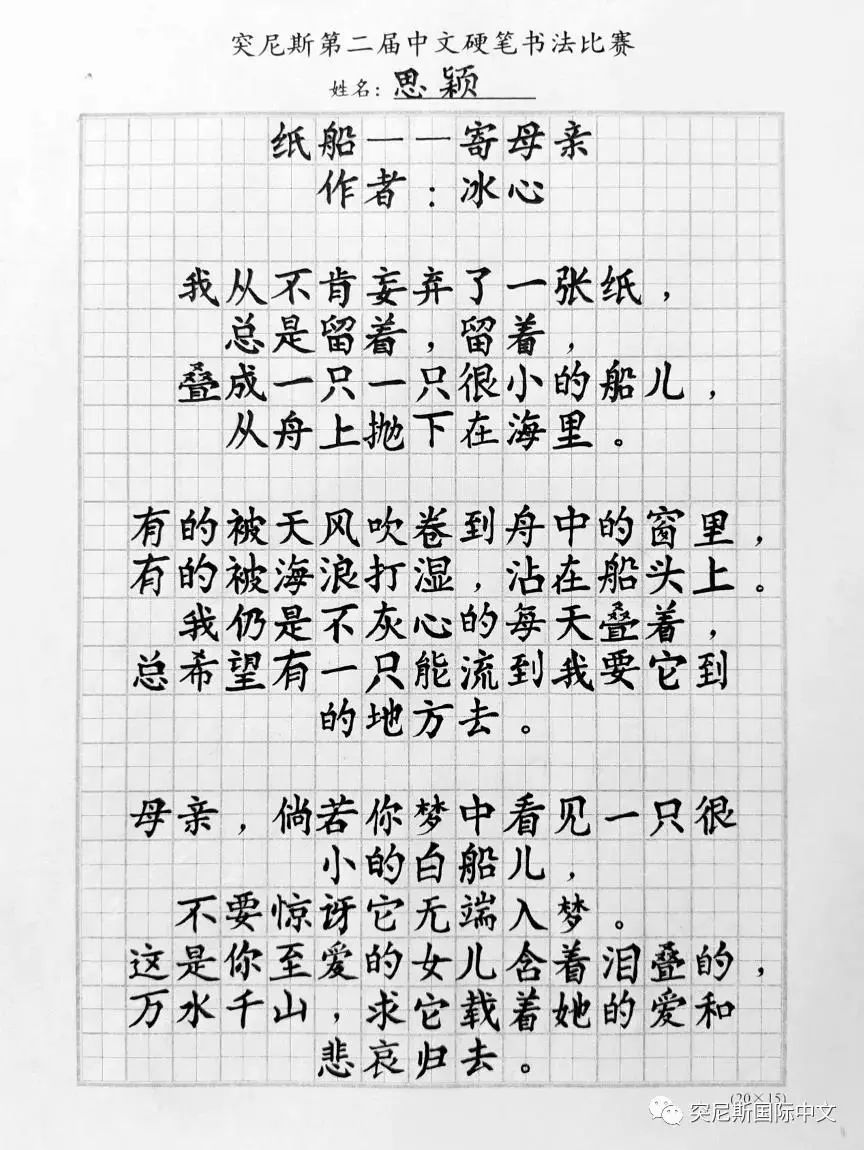 突尼斯第二届中文硬笔书法比赛
姓名：思颖
纸船一一寄母亲
作者：冰心
我从不肯妄弃了一张纸，
总是留着，留着，
叠成一只一只很小的船儿，
从舟上抛下在海里。
有的被天风吹卷到舟中的窗里，
有的被海浪打湿，沾在船头上。
我仍是不灰心的每天叠着，
总希望有一只能流到我要它到
的地方去。
母亲，倘若你梦中看见一只很
小的白船儿，
不要惊讶它无端入梦。
这是你至爱的女儿含着泪叠的，
万水千山，求它载着她的爱和
悲哀归去。
(20×15)
突尼斯国际中文